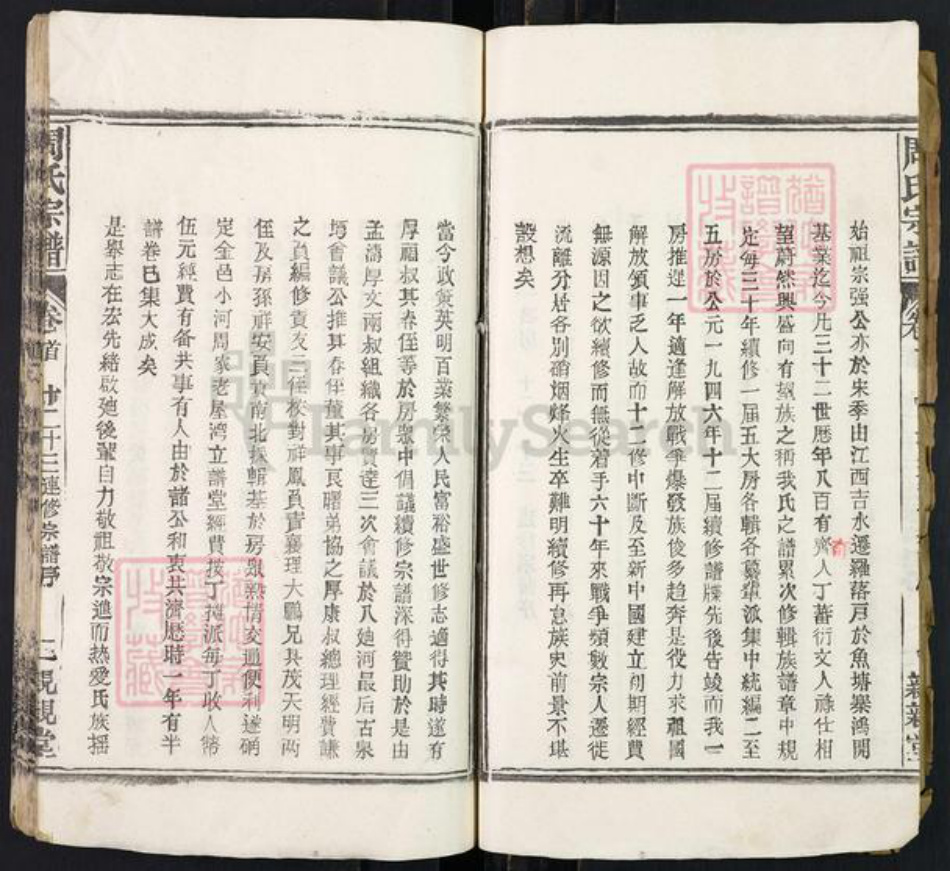 始祖宗强公亦於宋季由江西吉水遷羅落戸於魚塘寨鴻開
基業迄今凡三十二世歷年八百有齊人丁蕃衍文人祿仕相
望蔚然興盛向有望族之稱我氏之譜累次修輯族譜章中規
定每三十年續修一届五大房各輯各纂輩派集中統編二至
五房於公元一九四六年十二届續修譜牒先後告竣而我一
房推遲一年適逢解放戰爭爆發族俊多趋奔是役力求祖國
解放領事乏人故而十二修中斷及至新中國建立初期經費
無源因之欲續修而無從着手六十年來戰爭頻數宗人遷徙
流離分居各別硝烟烽火生卒難明續修再怠族史前景不堪
設想矣
當今政策英明百業繁榮人民富裕盛世修志適得其時遂有
厚福叔其春侄等於房眾中倡議續修宗譜深得贊助於是由
孟濤厚文兩叔組織各房賢達三次會議於八她河最后古泉
塆會議公推其春侄董其事艮曙弟協之厚康叔總理經費謙
之負編修責友三侄校對祥鳳負責襄理大鵬兄其茂天明兩
侄及房孫祥安負責南北採輯基於房眾熱情交通便利遂硝
定金邑小河周家老屋湾立譜堂經費按丁攤派每丁收人幣
伍元經費有备共事有人由於諸公和衷共濟歷時一年有半
譜卷巳集大成矣
是舉志在宏先緒啟廸後輩自力敬祖敬宗進而热爱氏族摇
周氏宗譜 卷首 廿二十三連修宗譜序 親親堂
周氏宗譜
FamilySearch